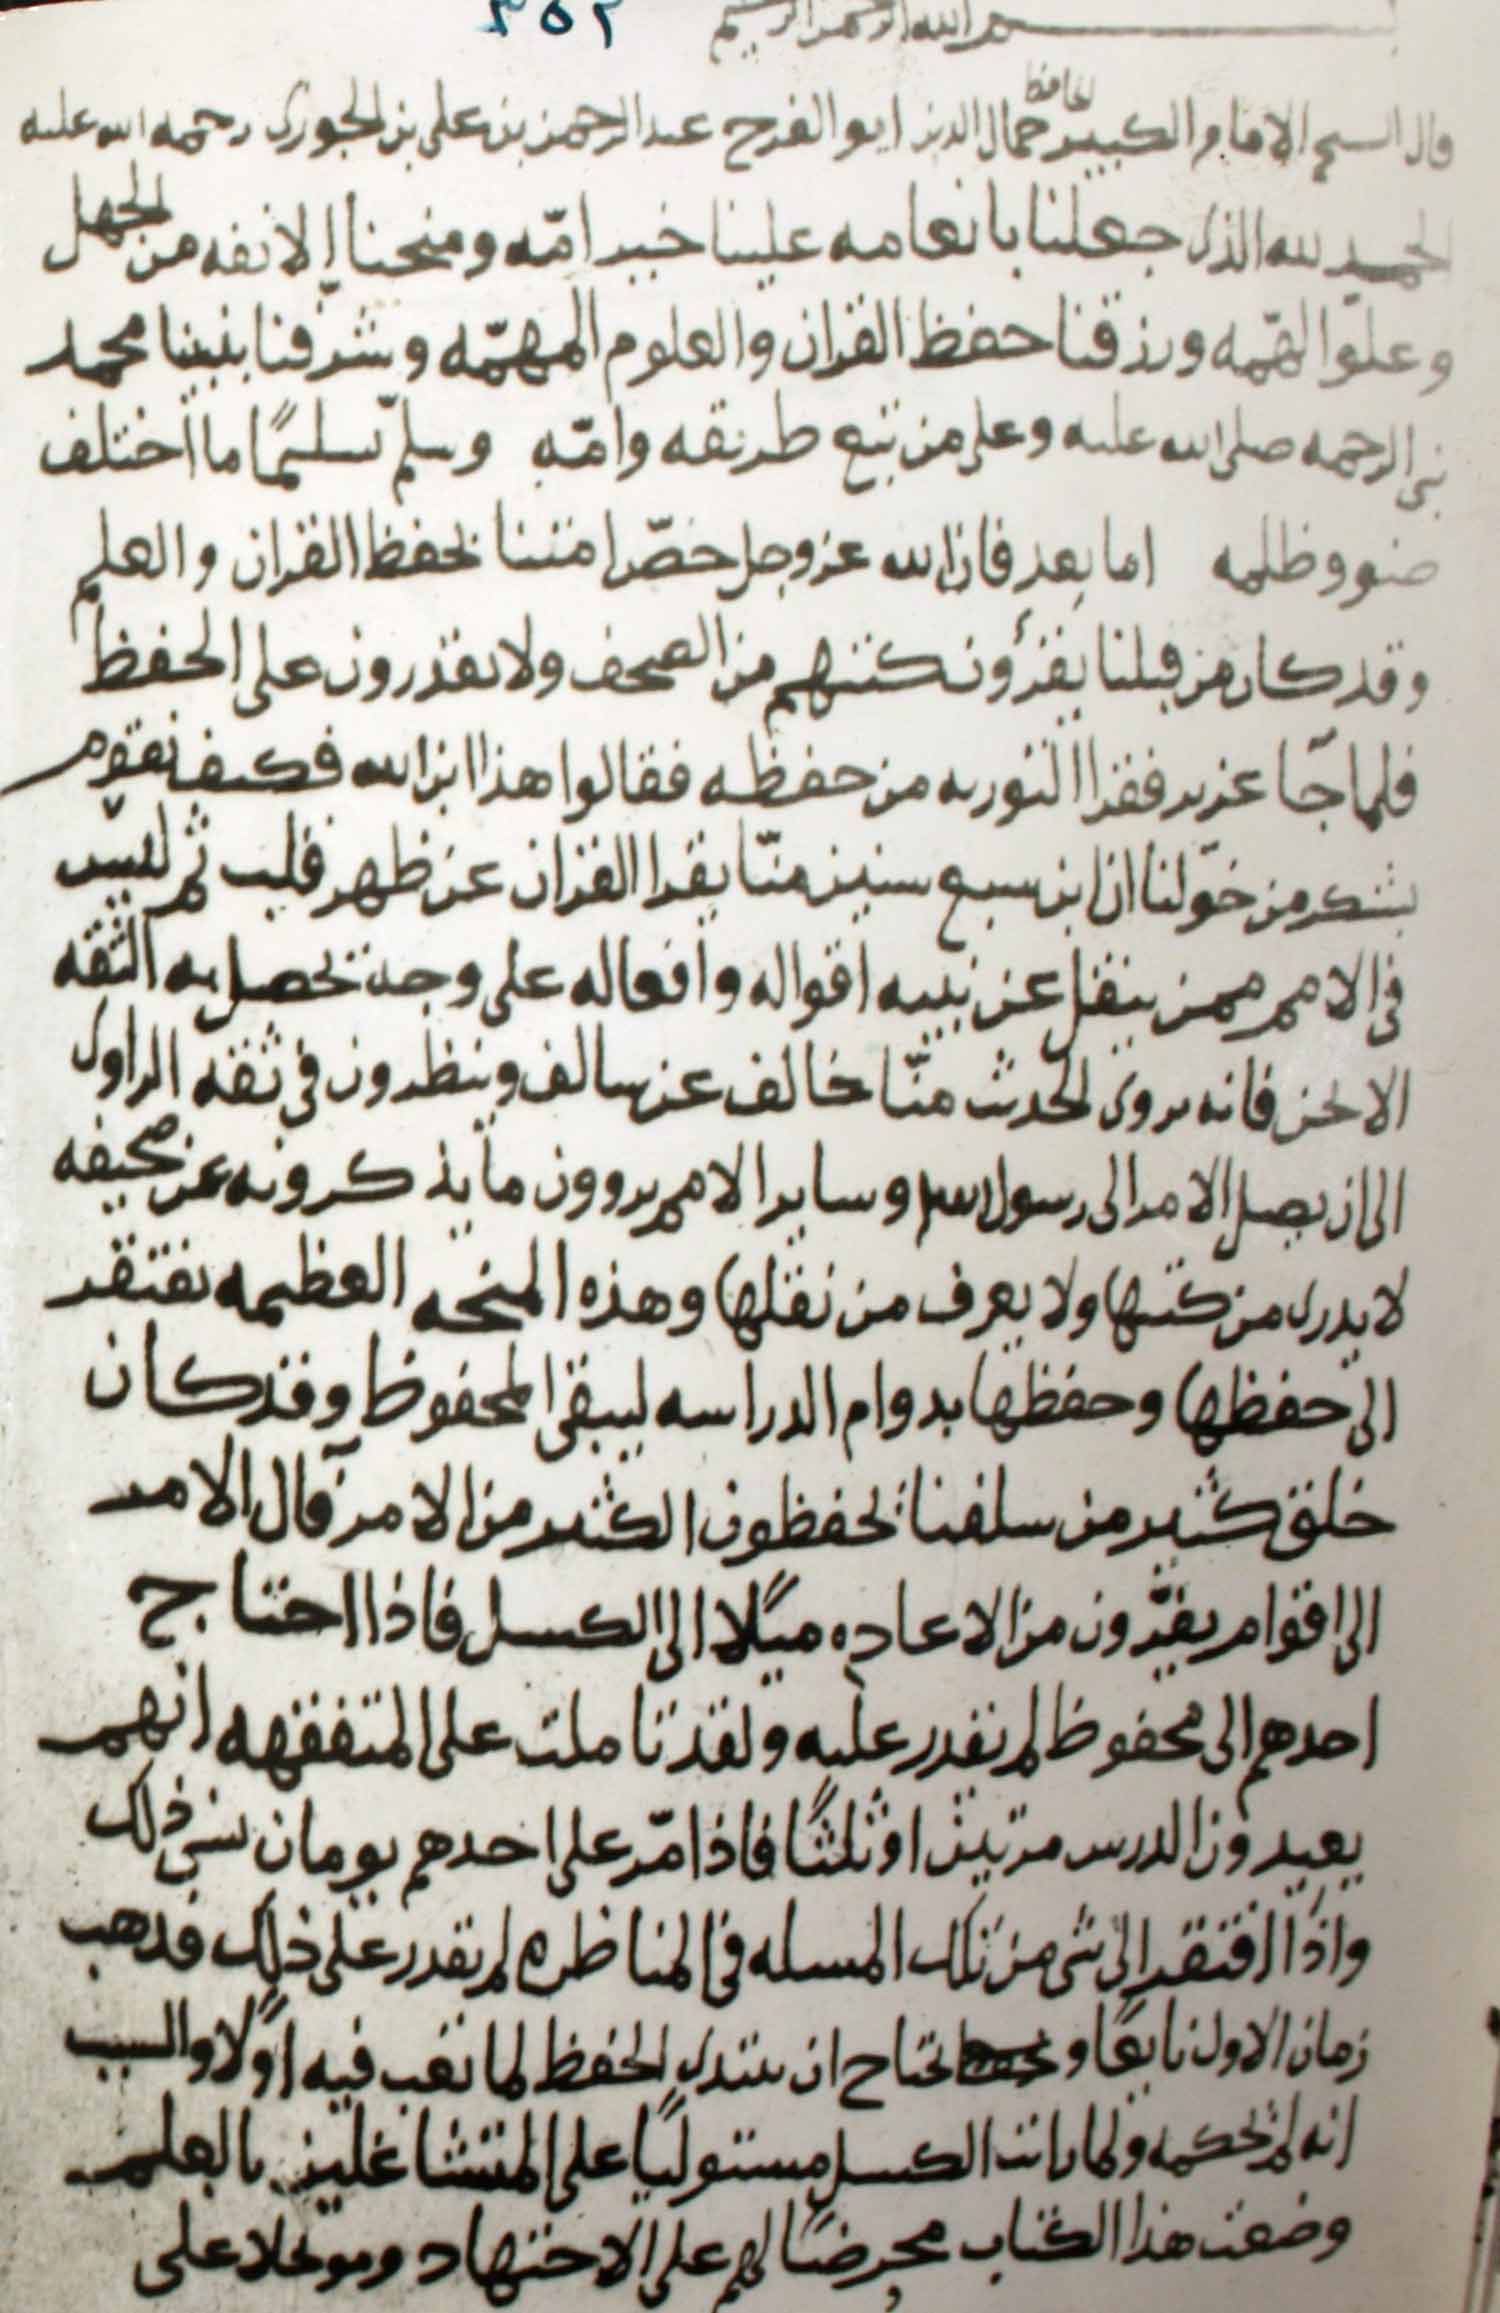 ٣٥٢
بسم الله الرحمن الرحيم
قال الشيخ الامام الكبير الحافظ جمال الدين ابو الفرج عبد الرحمن بن علي بن الجوزي رحمه الله عليه
الحمد لله الذي جعلنا بانعامه علينا خير امّه ومنحنا الانفه من الجهل
وعلوّ الهمّه ورزقنا حفظ القران والعلوم المهمّه وشرّفنا بنبينا محمد
نبي الرحمه صلى الله عليه وعلى من تبع طريقه وامّه وسلم تسليمًا ما اختلف
ضوو وظلمه اما بعد فان الله عز وجل خصّ امتنا بحفظ القران والعلم
وقد كان من قبلنا يقرؤن كتبهم من الصحف ولا يقدرون على الحفظ
فلما جّا عزير فقرا التوريه من حفظه فقالوا هذا ابن الله فكيف نقوم
بشكر من خوّلنا ان ابن سبع سنين منّا يقرا القران عن ظهر قلب ثم ليس
في الامم ممن ينقل عن نبيه اقواله وافعاله على وجه تحصل به الثقه
الا نحن فانه يروى الحديث منّا خالف عن سالف وينظرون في ثقه الراوي
الى ان يصل الامر الى رسول الله وساير الامم يروون ما يذكرونه عن صحيفه
لا يدرى من كتبها ولا يعرف من نقلها وهذه المنحه العظيمه تفتقر
الى حفظها وحفظها بدوام الدراسه ليبقى المحفوظ وقد كان
خلق كثير من سلفنا يحفظون الكثير من الامر فآل الامر
الى اقوام يفرّون من الاعاده ميلًا الى الكسل فاذا احتاج
احدهم الى محفوظ لم يقدر عليه ولقد تاملت على المتفقهه انهم
يعيدون الدرس مرتين او ثلثًا فاذا مرّ على احدهم يومان نسي ذلك
واذا افتقر الى شي من تلك المسله في المناظره لم يقدر على ذلك فذهب
زمان الاول تابعًا و يحتاج ان يبتدي الحفظ لما تعب فيه اولًا والسبب
انه لم يحكمه ولما رايت الكسل مستوليًا على المتشاغلين بالعلم
وضعت هذا الكتاب محرضًا لهم على الاجتهاد على